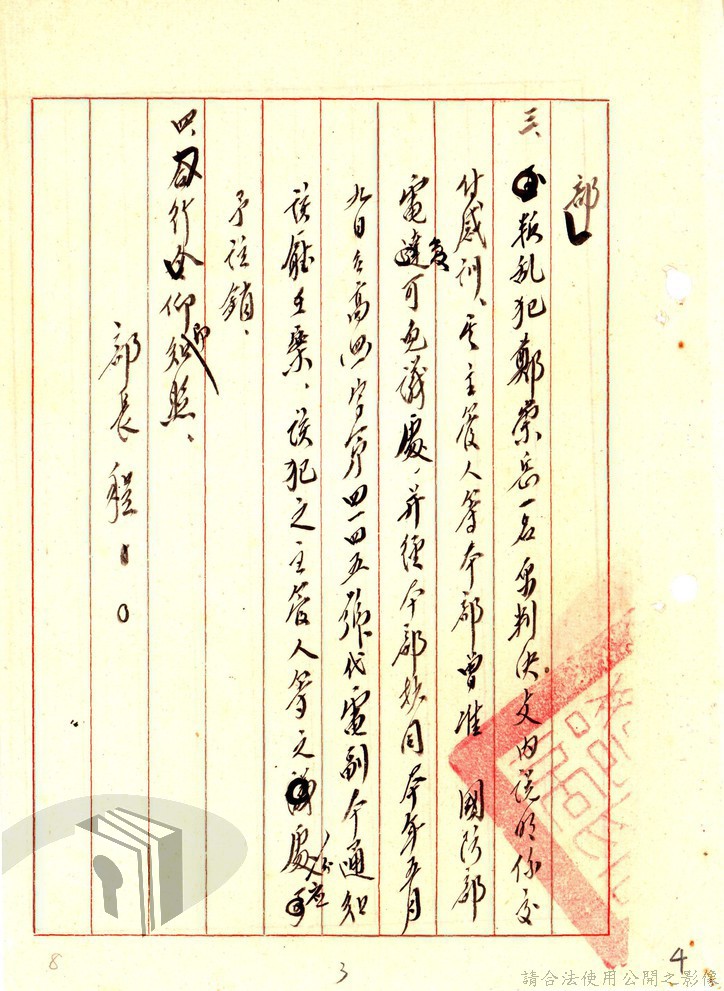 部
三、叛亂犯鄭崇岳一名原判決文內說明係交
付感訓、其主管人等本部曾准 國防部
電復可免議處、并經本部於同本年五月
九日 高四字第四一四五號代電副本通知
該廳主案、該犯之主管人等之議處部分應
予註銷、
四、右行令仰即知照、
部長 程
8
3
4
請合法使用公開之影像